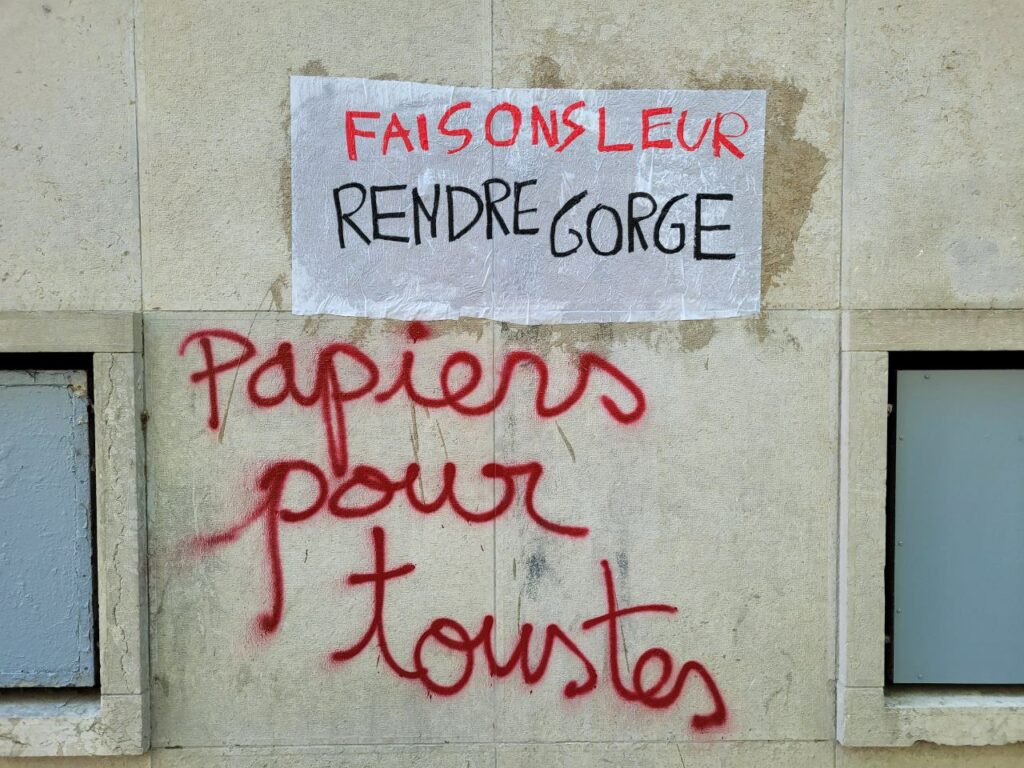 FAISONS LEUR
RENDRE GORGE
Papiers
pour
toustes